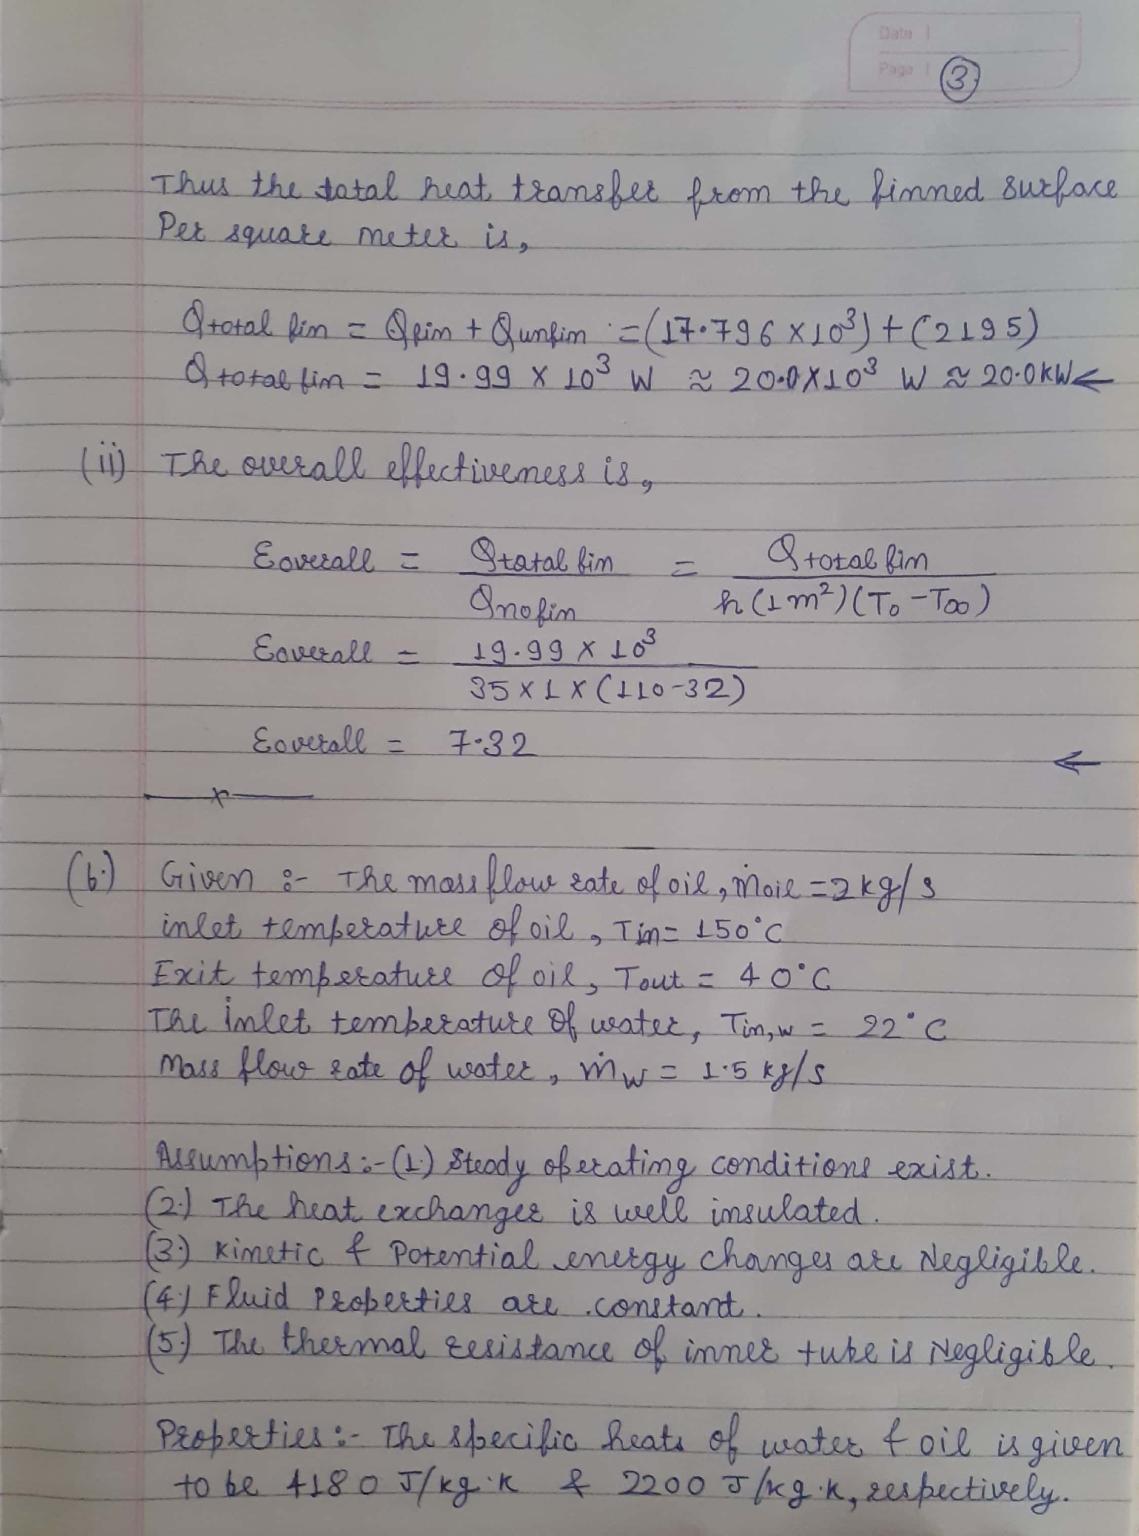 Date |
Page | 3
Thus the total heat transfer from the finned surface
Per square meter is,
Qtotal fin = Qfin + Qunfin = (17.796 × 10³) + (2195)
Qtotal fin = 19.99 × 10³ W ≈ 20.0 × 10³ W ≈ 20.0 kW ←
(ii) The overall effectiveness is,
Eoverall = Qtotal fin / Qnofin = Qtotal fin / h (1 m²) (T₀ - T∞)
Eoverall = 19.99 × 10³ / 35 × 1 × (110-32)
Eoverall = 7.32 ←
x
(b.) Given :- The mass flow rate of oil, ṁoil = 2 kg/s
inlet temperature of oil, Tin = 150°C
Exit temperature of oil, Tout = 40°C
The inlet temperature of water, Tin,w = 22°C
Mass flow rate of water, ṁw = 1.5 kg/s
Assumptions :- (1.) Steady operating conditions exist.
(2.) The heat exchanger is well insulated.
(3.) Kinetic & Potential energy changes are Negligible.
(4.) Fluid Properties are constant.
(5.) The thermal resistance of inner tube is Negligible.
Properties :- The specific heats of water & oil is given
to be 4180 J/kg.K & 2200 J/kg.K, respectively.